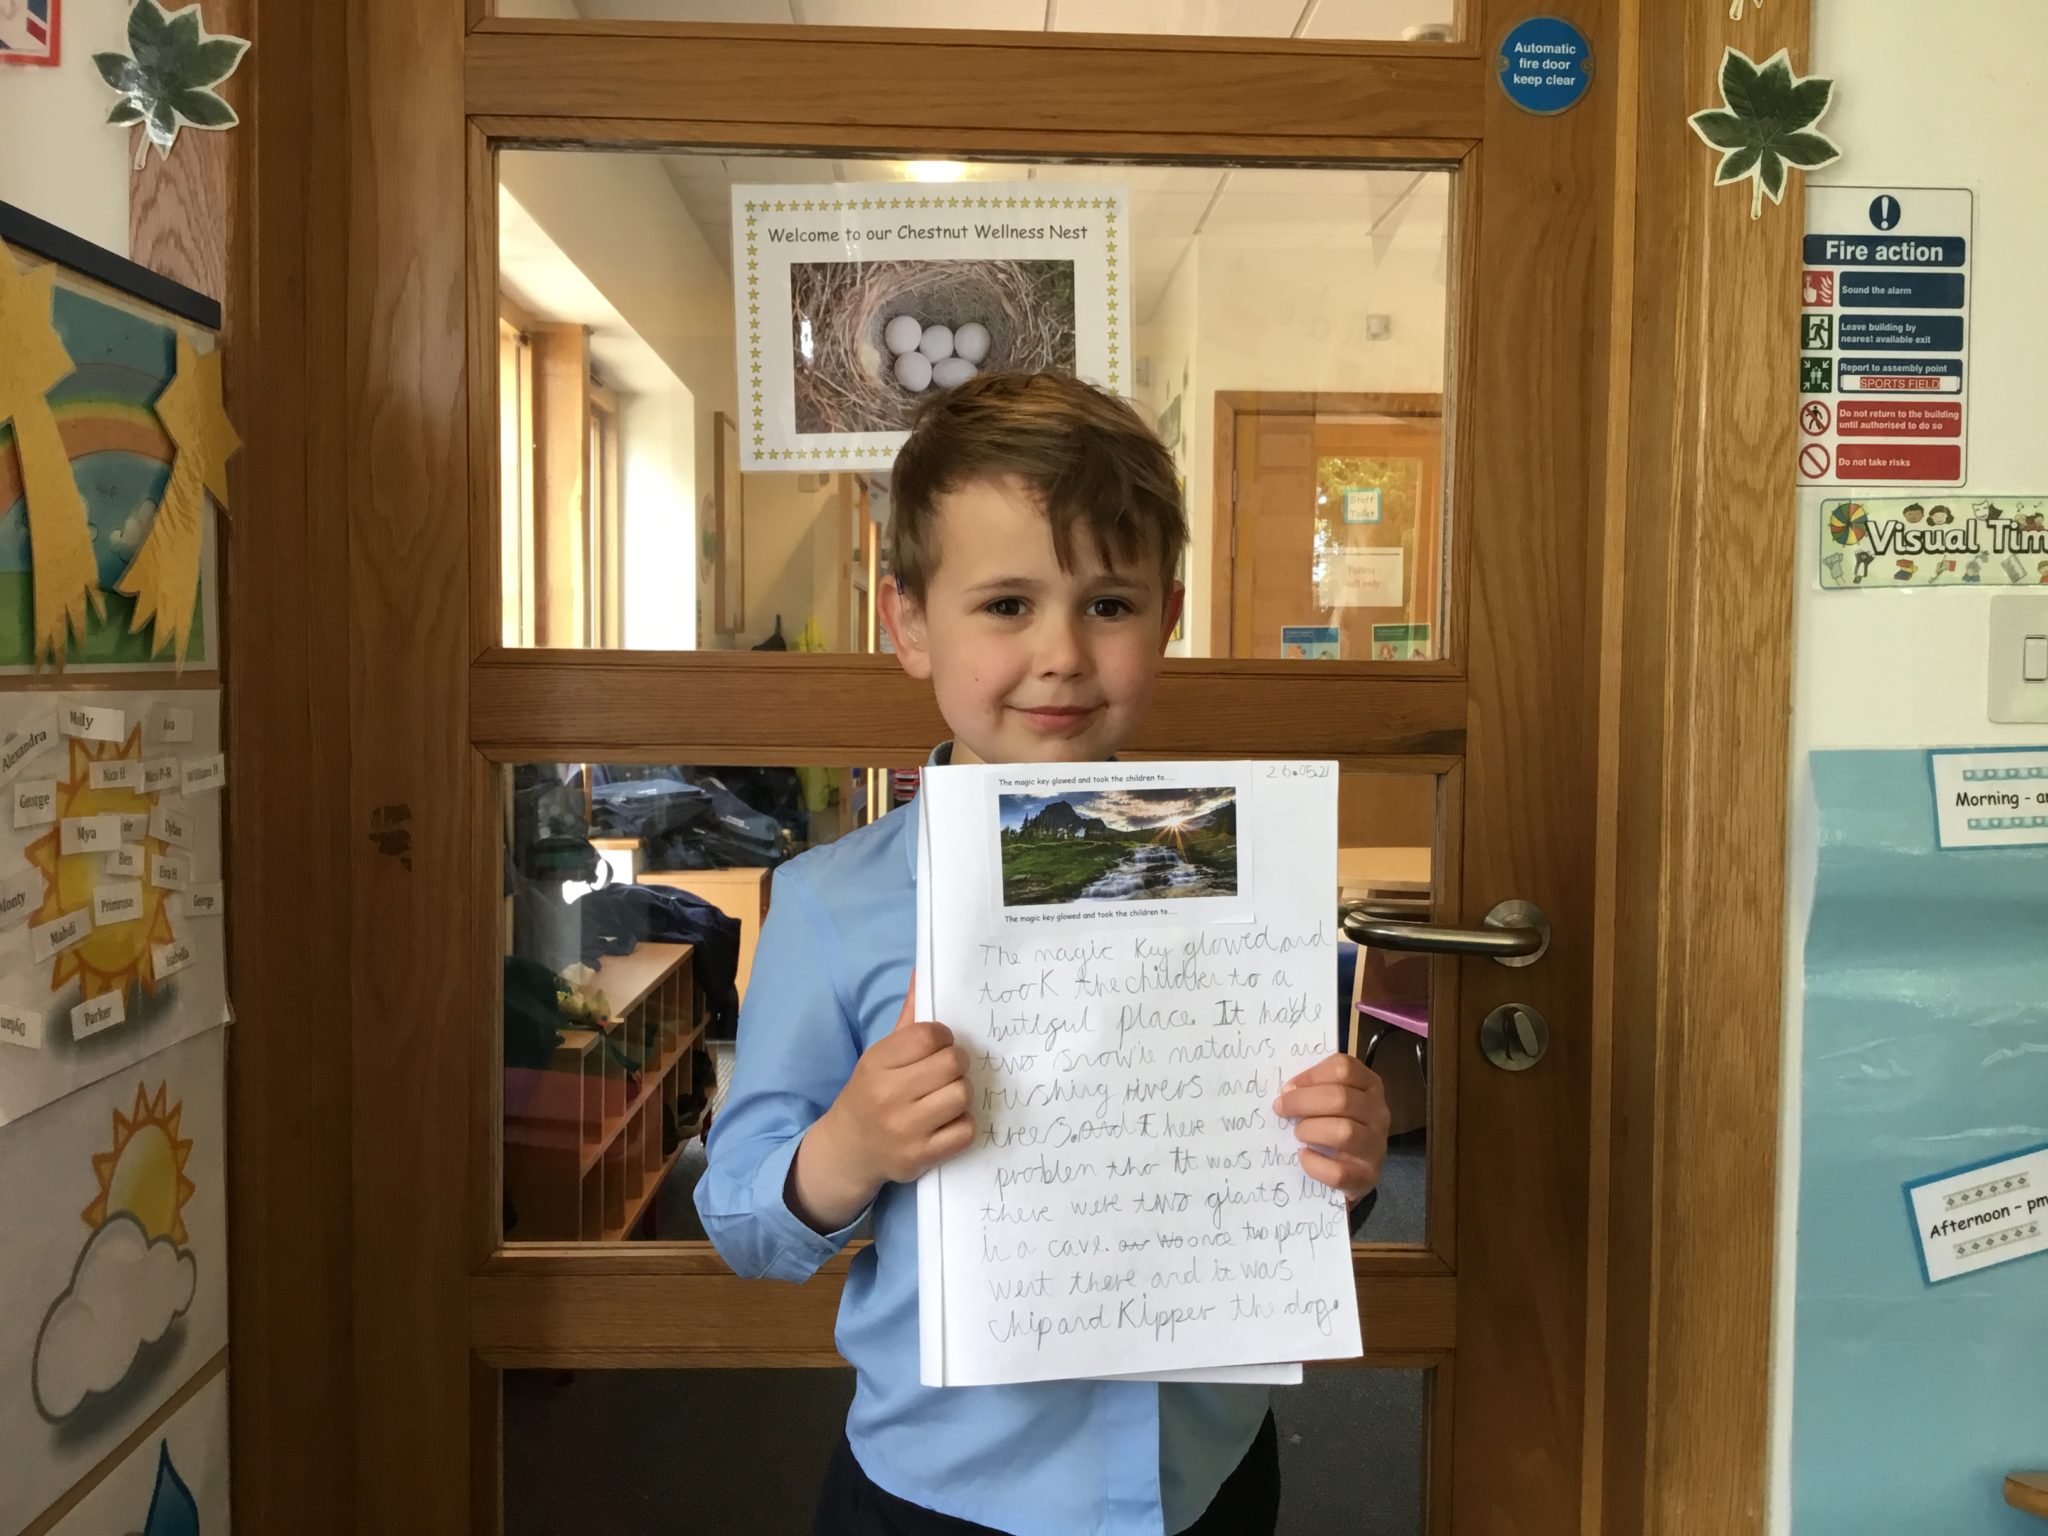 Automatic
fire door
keep clear
Welcome to our Chestnut Wellness Nest
Fire action
Sound the alarm
Leave building by
nearest available exit
Report to assembly point
SPORTS FIELD
Do not return to the building
until authorised to do so
Do not take risks
Staff
Toilet
Toilets -
Visual Tim
Morning - a
Afternoon - pm
Molly
Ava
Alexandra
Nico H
Nico P-R
William H
George
Mya
Dylan
Ben
Eva H
Monty
Primrose
George
Mahdi
Isabella
Parker
Dylan
The magic key glowed and took the children to....
26.05.21
The magic key glowed and took the children to....
The magic key glowed and
took the children to a
place. It
two snowie natains and
rushing rivers and
trees. and There was
problem tho It was
there were two giants
in a cave. once two people
went there and it was
chip and Kipper the dog.